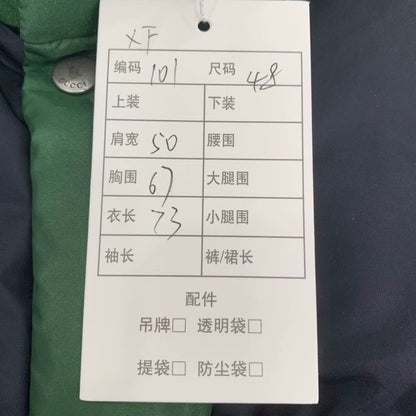 XF
编码 101 尺码 48
上装 下装
肩宽 50 腰围
胸围 67 大腿围
衣长 73 小腿围
袖长 裤/裙长
配件
吊牌□ 透明袋□
提袋□ 防尘袋□
GUCCI